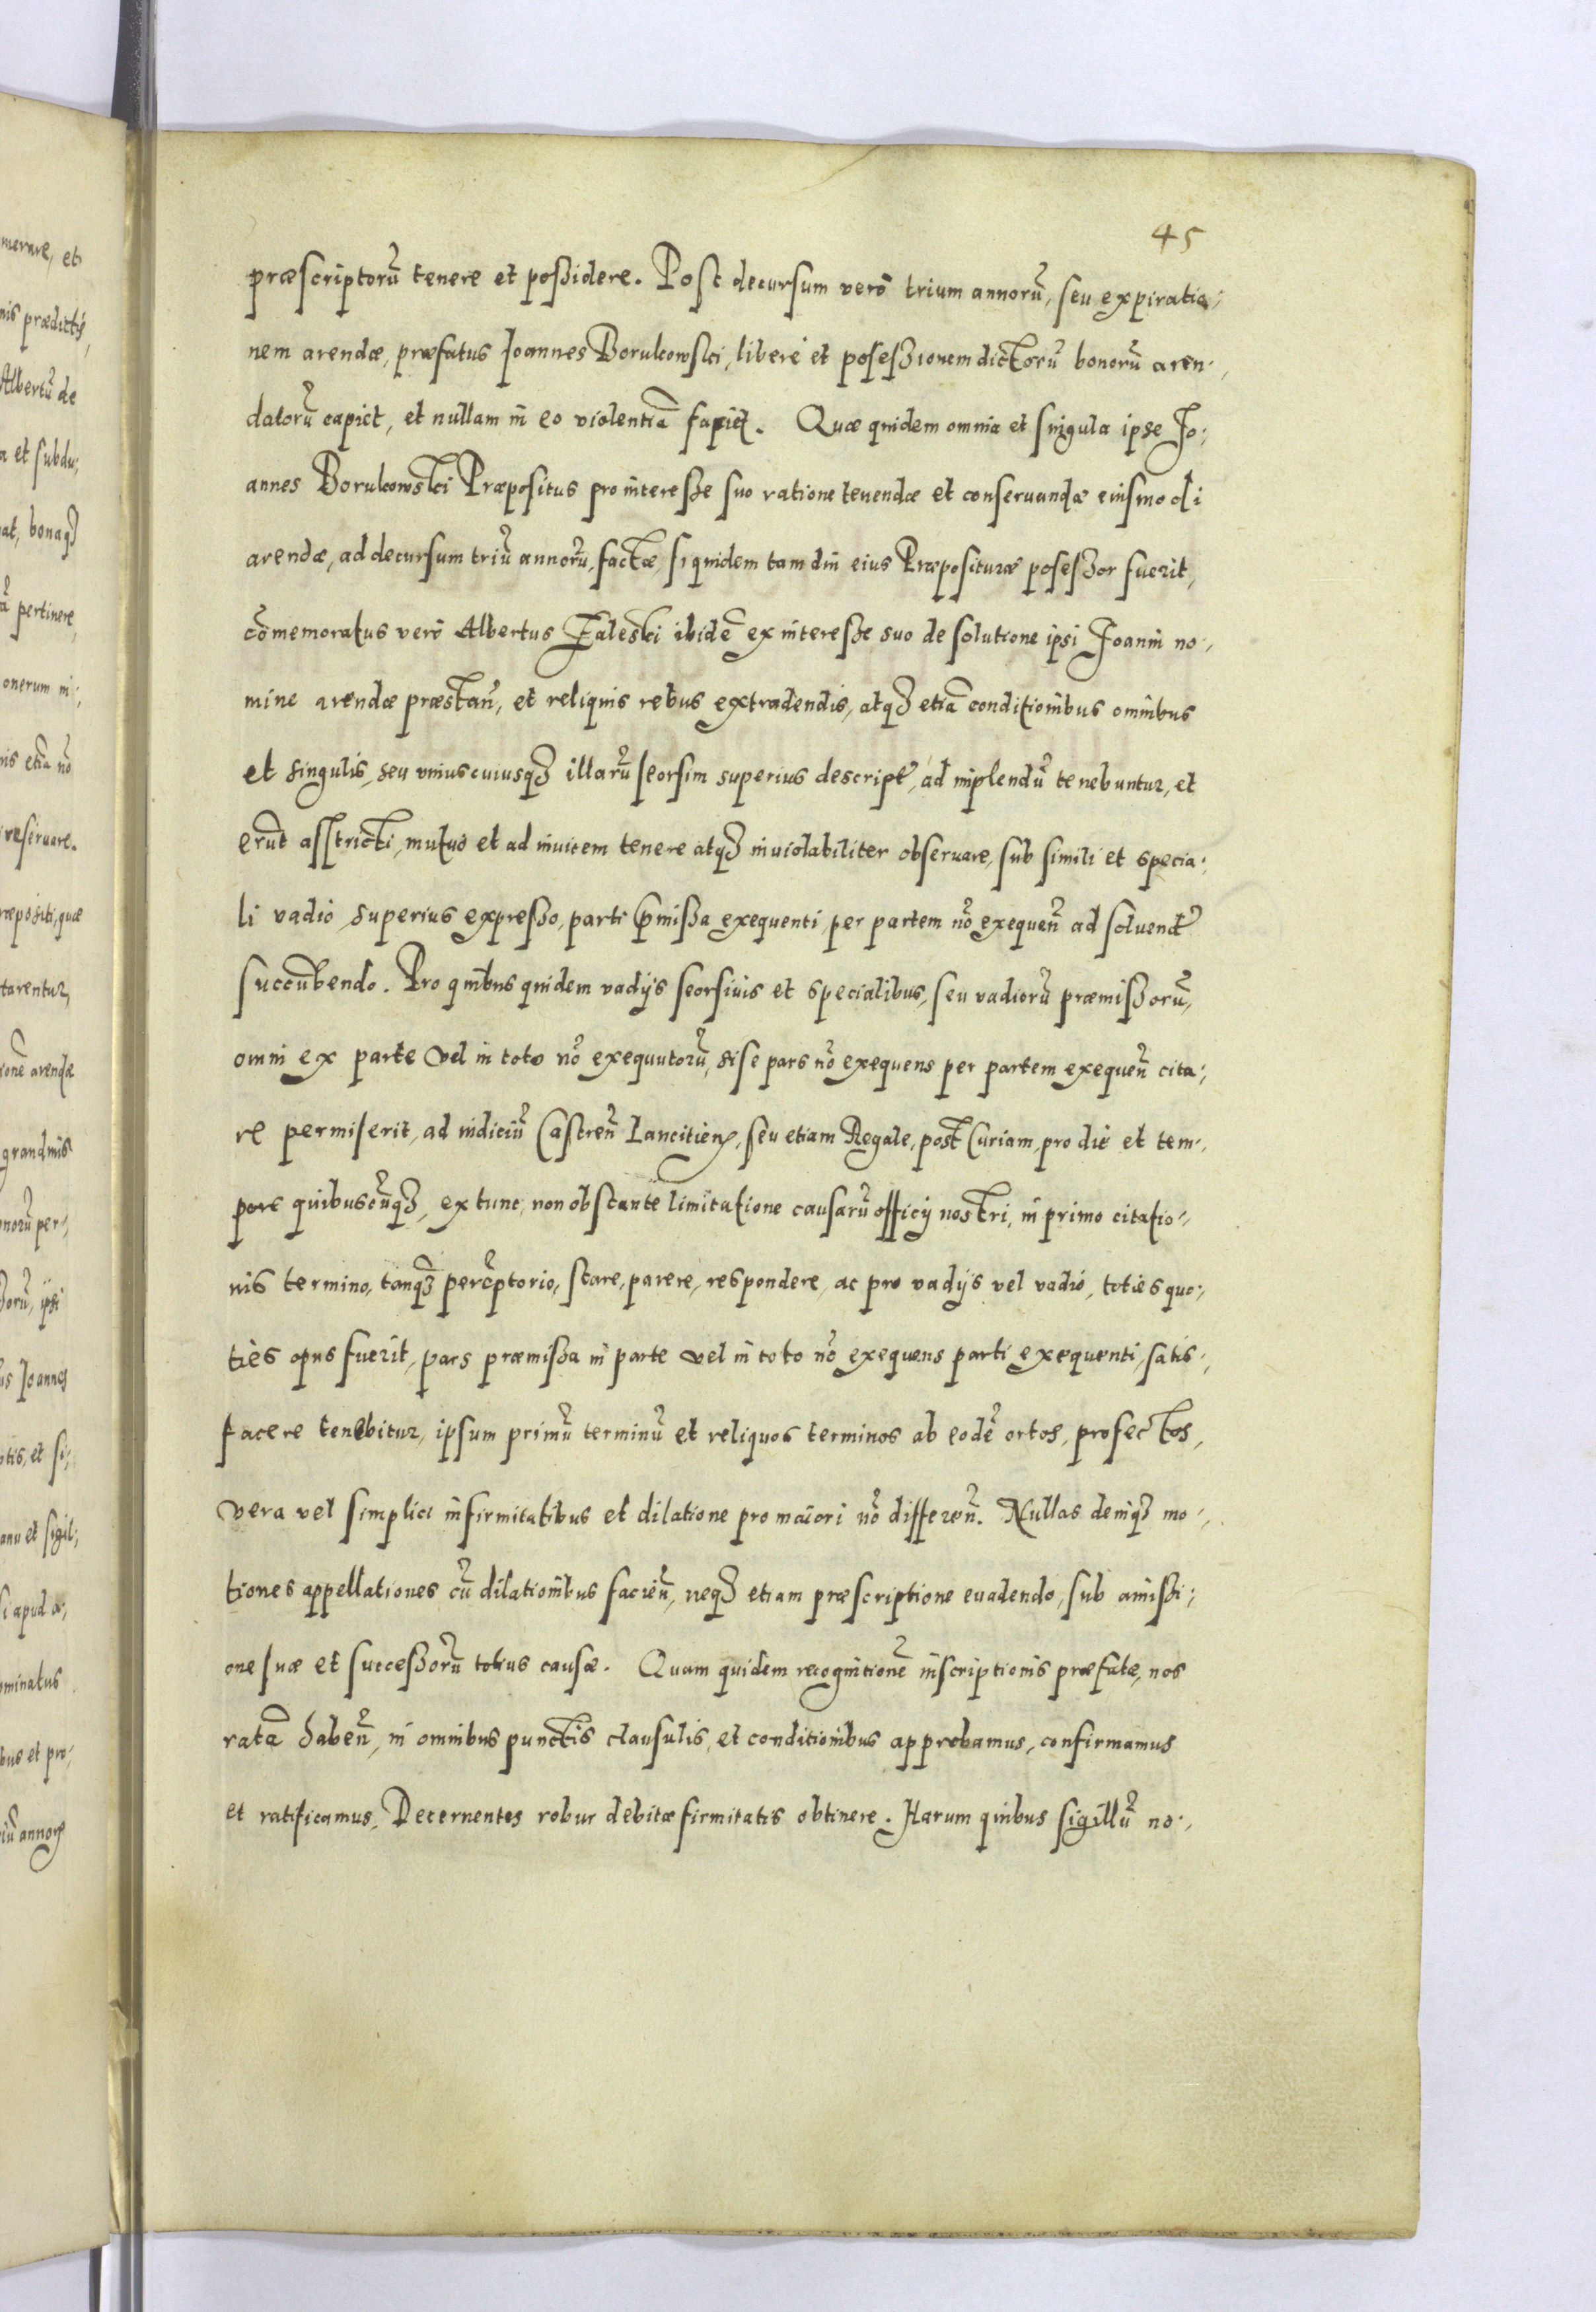 45
præscriptorũ tenere et poßidere. Post decursum verò trium annorũ, seu expiratio,,
nem arendæ, præfatus Joannes Borukowski, liberè et poseßionem dictorũ bonorũ aren,,
datorũ capiet, et nullam in eo violentiã faciet. Quæ quidem omnia et singula ipse Jo,,
annes Borukowski Præpositus pro intereße suo ratione tenendæ et conseruandæ eiusmodi
arendæ, ad decursum triũ annorũ, factæ, siquidem tam diu eius Præposituræ poseßor fuerit,
cõmemoratus verò Albertus Zaleski ibidẽ ex intereße suo de solutione ipsi Joanni no,,
mine arendæ præstañ, et reliquis rebus extradendis, atqꝫ etiã conditionibus omnibus
et singulis, seu vniuscuiusqꝫ illarũ seorsim superius descript, ad implendũ tenebuntur, et
erũt asstricti, mutuò et ad inuicem tenere atqꝫ inuiolabiliter obseruare, sub simili et specia,,
li vadio superius expreßo, parti p̃mißa exequenti per partem nõ exequeñ ad soluend
succũbendo. Pro quibus quidem vadijs seorsiuis et specialibus, seu vadiorũ præmißorũ,
omni ex parte vel in toto nõ exequutorũ, si se pars nõ exequens per partem exequeñ cita,,
re permiserit, ad iudiciũ Castreñ Lancitień, seu etiam Regale, post Curiam, pro die et tem,,
pore quibuscũqꝫ, ex tunc, non obstante limitatione causarũ officij nostri, in primo citatio,,
nis termino, tanqꝫ perẽptorio, stare, parere, respondere, ac pro vadijs vel vadio, toties quo,,
ties opus fuerit, pars præmißa in parte vel in toto nõ exequens parti exequenti, satis,,
facere tenebitur, ipsum primũ terminũ et reliquos terminos ab eodẽ ortos, profectos,
vera vel simplici infirmitatibus et dilatione pro maiori nõ differeñ. Nullas deniqꝫ mo,,
tiones appellationes cũ dilationibus facieñ, neqꝫ etiam præscriptione euadendo, sub amißi,,
one suæ et succeßorũ totius causæ. Quam quidem recognitionẽ inscriptionis præfatæ, nos
ratã habeñ, in omnibus punctis clausulis, et conditionibus approbamus, confirmamus
et ratificamus, Decernentes robur debitæ firmitatis obtinere. Harum quibus sigillũ no,,